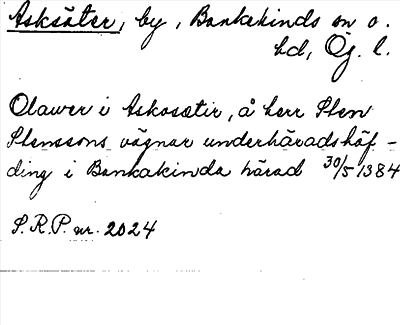 Asksäter, by, Bankekinds sn o.
hd, Ög. l.
Olawer i Askosætir, å herr Sten
Stenssons vägnar underhäradshöf-
ding i Bankakinda härad 30/5 1384
S.R.P. nr. 2024